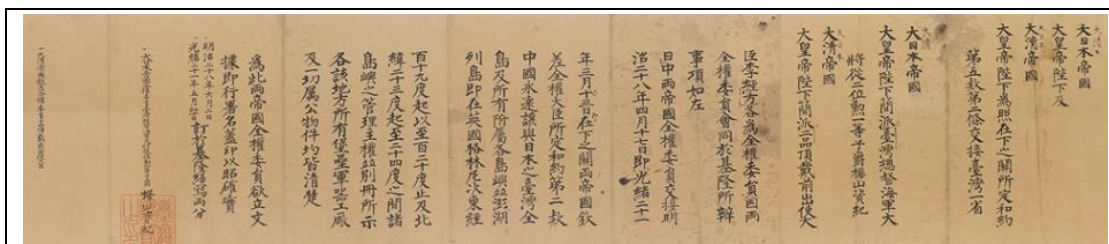 大日本帝國
大皇帝陛下及
大清帝國
大皇帝陛下為照在下之關所定和約
第五款第二條交接臺灣一省
大日本帝國
大皇帝陛下簡派臺灣總督海軍大
將從二位勲一等子爵樺山資紀
大清帝國
大皇帝陛下簡派二品頂戴前出使大
臣李經方各為全權委員因兩
全權委員會同於基隆所辦
事項如左
日中兩帝國全權委員交接明
治二十八年四月十七日即光緒二十一
年三月二十三日在下之關兩帝國欽
差全權大臣所定和約第二款
中國永遠讓與日本之臺灣全
島及所有附屬各島嶼並澎湖
列島即在英國格林尼次東經
百十九度起以至百二十度止及北
緯二十三度起至二十四度之間諸
島嶼之管理主權並別冊所示
各該地方所有堡壘軍器工廠
及一切屬公物件均皆清楚
為此兩帝國全權委員欲立文
據即行署名蓋印以昭確實
明治二十八年六月二日
光緒二十一年五月初十日訂於基隆繕寫兩分
樺山資紀